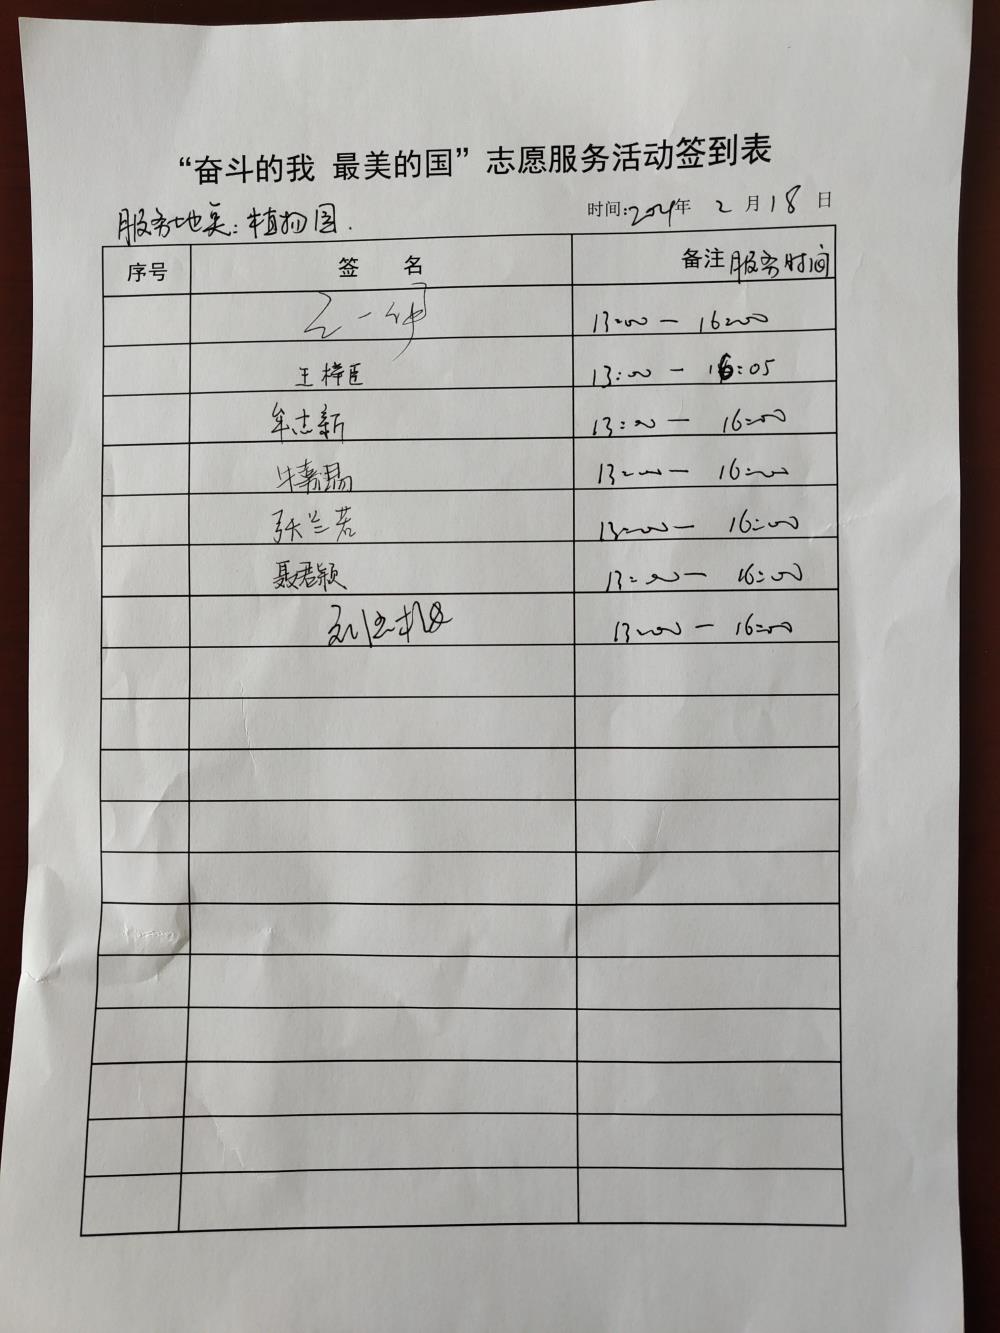 “奋斗的我 最美的国”志愿服务活动签到表
服务地点:植物园.
时间:2024年 2 月 18 日
序号 签 名 备注 服务时间
王一帆 13:00 — 16:00
王梓臣 13:00 — 16:05
牟志新 13:00 — 16:00
13:00 — 16:00
张兰若 13:00 — 16:00
聂君颖 13:00 — 16:00
13:00 — 16:00